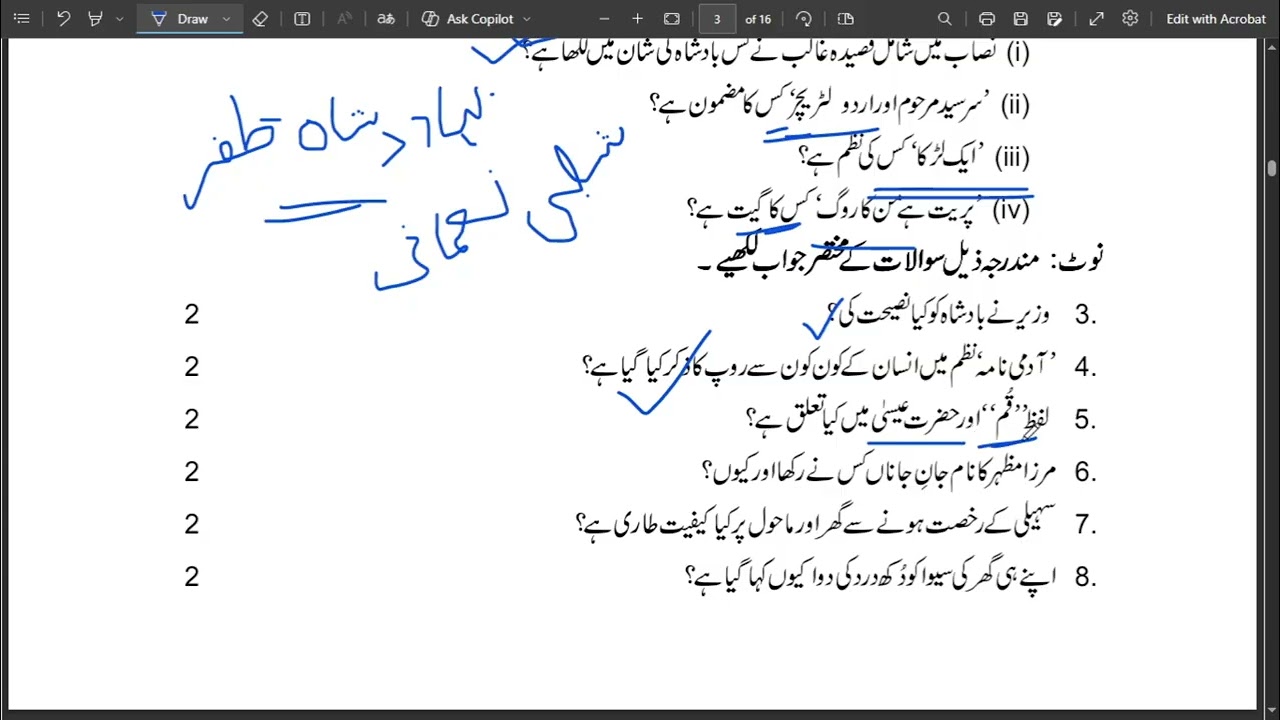 Draw
Ask Copilot
3 of 16
Edit with Acrobat
(i) نصاب میں شامل قصیدہ غالب نے کس بادشاہ کی شان میں لکھا ہے؟
(ii) ’سرسید مرحوم اور اردو لٹریچر‘ کس کا مضمون ہے؟
بہادر شاہ ظفر
(iii) ’ایک لڑکا‘ کس کی نظم ہے؟
شبلی نعمانی
(iv) ’پریت ہے من کا روگ‘ کس کا گیت ہے؟
نوٹ: مندرجہ ذیل سوالات کے مختصر جواب لکھیے ۔
3. وزیر نے بادشاہ کو کیا نصیحت کی؟ 2
4. ’آدمی نامہ‘ نظم میں انسان کے کون کون سے روپ کا ذکر کیا گیا ہے؟ 2
5. لفظ ’’قُم‘‘ اور حضرت عیسیٰ میں کیا تعلق ہے؟ 2
6. مرزا مظہر کا نام جانِ جاناں کس نے رکھا اور کیوں؟ 2
7. سہیلی کے رخصت ہونے سے گھر اور ماحول پر کیا کیفیت طاری ہے؟ 2
8. اپنے ہی گھر کی سیوا کو دُکھ درد کی دوا کیوں کہا گیا ہے؟ 2